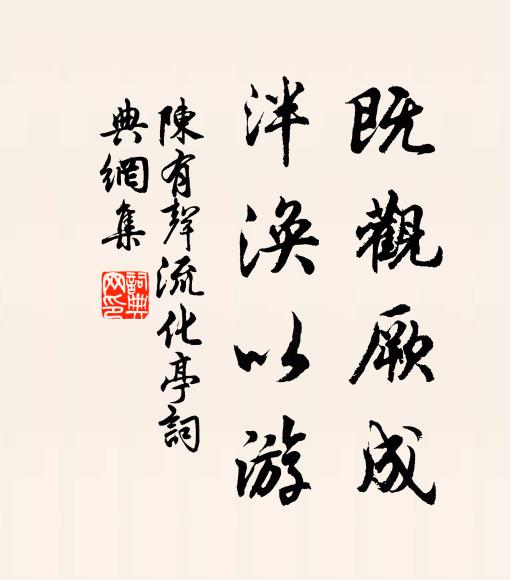 既觀厥成
泮渙以游
陳有聲流化亭詞
典網集
詞典网印